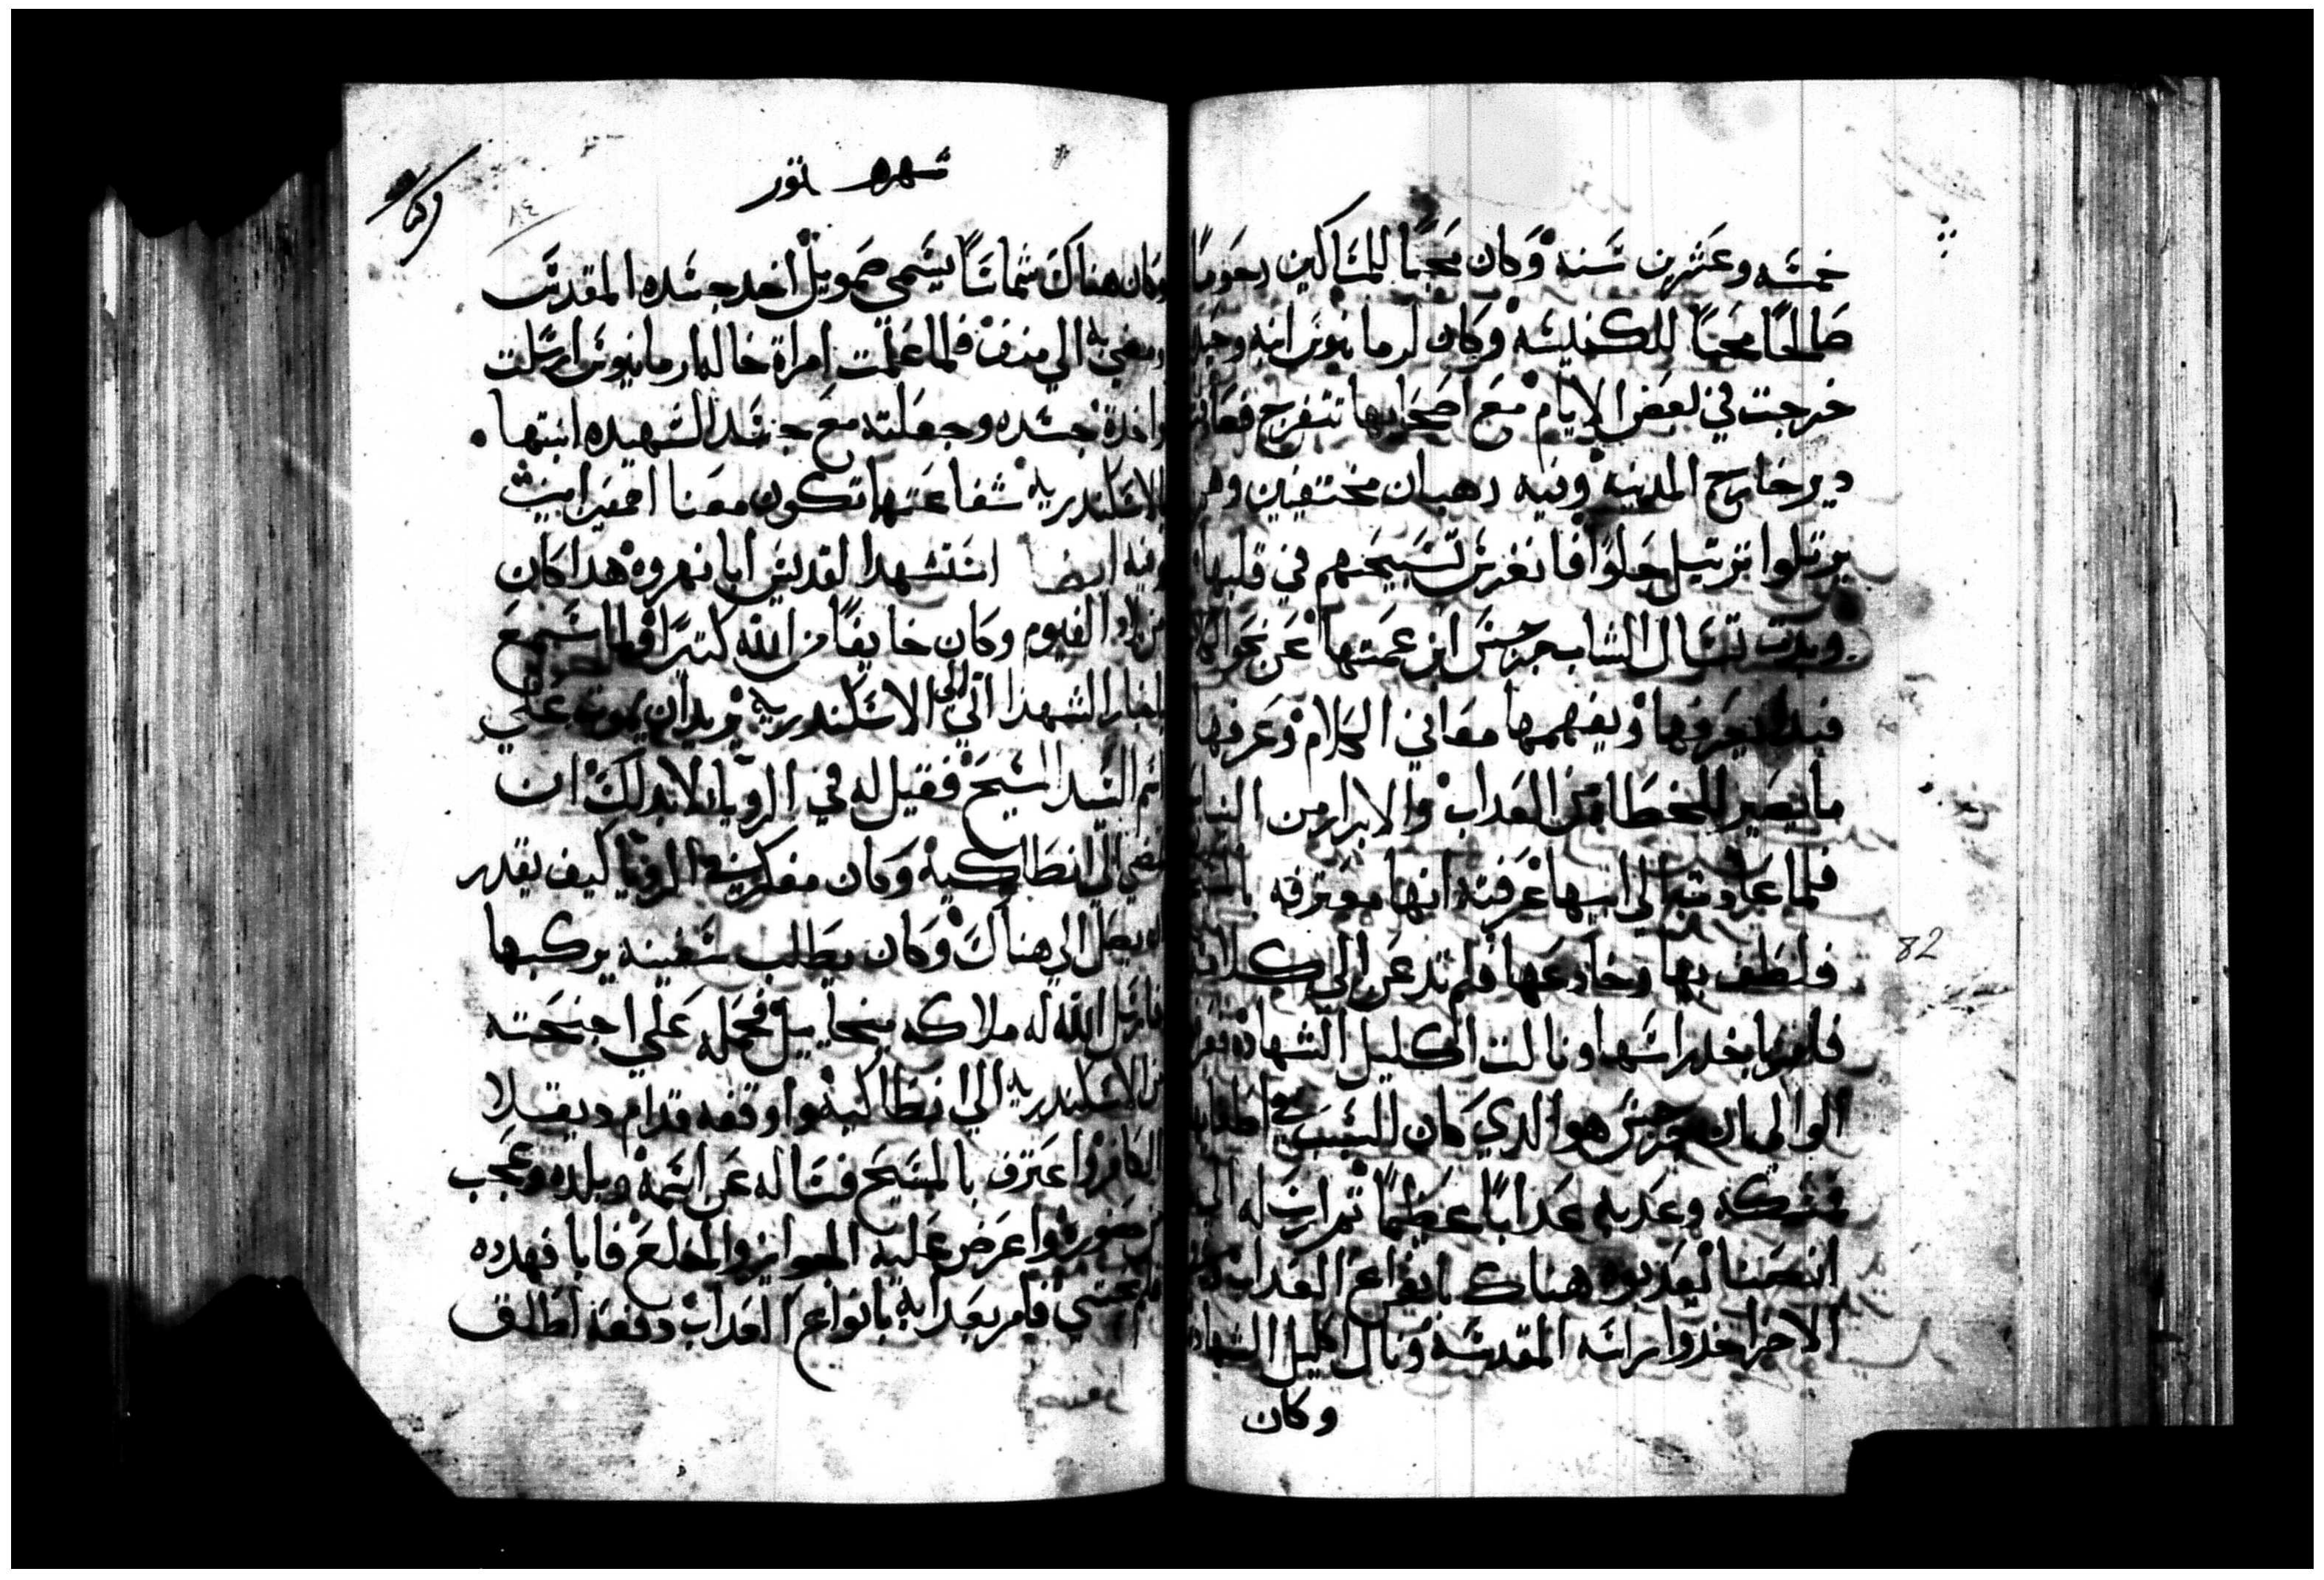 خمسه وعشرين سنه وكان محبا للمساكين رحوما
صالحا محبا للكنيسه وكان لرمانيوس ابنه وحيده
خرجت في بعض الايام مع اصحابها تتفرج فعاينت
دير خارج المدينه وفيه رهبان مختفيين وهم
يرتلوا بترتيل حلوا فانغرس تسبيحهم في قلبها
وبدت تسال الشاب جرجس ابن عمتها عن نحو الكلام
فبدا يعرفها ويفهمها معاني الكلام وعرفها
ما يصير للخطاه من العداب والابرار من النياح
فلما عادت الي ابيها عرفته انها معترفه بالمسيح
فلطف بها وخادعها فلم تدعن الي كلامه
فامر باخد راسها ونالت اكليل الشهاده فعرف
الوالي بان جرجس هو الدي كان السبب في
فمسكه وعدبه عدابا عظيما تم ارسله الي
انصنا فعدبوه هناك بانواع العداب وفي
الاخر اخدوا راسه المقدسه ونال اكليل الشهاده
وكان
شهر هتور
٨٤
وكان هناك شماسا يسمي صمويل اخد جسده المقدس
ومضي به الي منف فلما علمت امراة خاله ارمانيوس ارسلت
واخدة جسده وجعلته مع جسد الشهيده ابنتها
بالاسكندريه شفاعتها تكون معنا امين
وفيه ايضا استشهد القديس ابا نهروه هدا كان
من بلاد الفيوم وكان خايفا من الله كتيرا فلما سمع
باخبار الشهدا اتي الي الاسكندريه يريد ان يموت علي
اسم السيد المسيح فقيل له في الرويا لابد لك ان
تمضي الي انطاكيه وكان مفكر في الرويا كيف يقدر
ان يصل الي هناك وكان يطلب سفينه يركبها
فارسل الله له ملاكه ميخاييل فحمله علي اجنحته
من الاسكندريه الي انطاكيه واوقفه قدام ديقلا
الكافر واعترف بالمسيح فساله عن اسمه وبلده وعجب
من حضوره واعرض عليه الجوايز والخلع فابا فهدده
فلم يختشي فامر بعدابه بانواع العداب دفعه اطلق
82